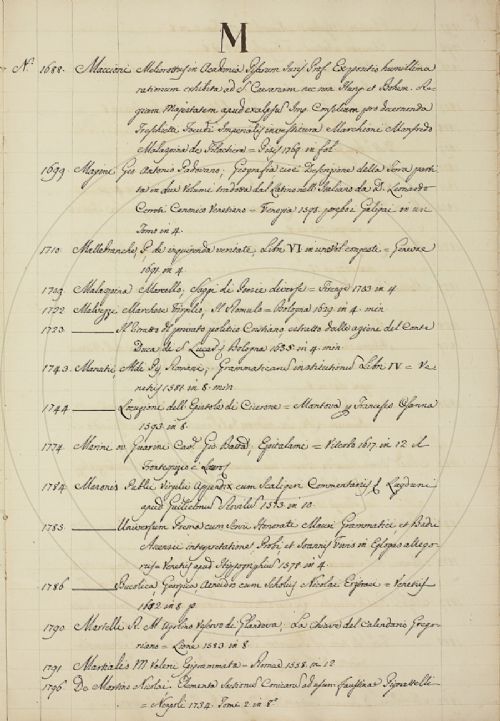 M
N.º 1688. Maccioni Migliorottus in Academia Pisarum Juris Prof. Expositio humillima
rationum exhibita ad S. Caesaream nec non Hung. et Bohem. Re-
giam Majestatem apud excelsum Imp. Consilium pro decernenda
Imperialis investitura Marchioni Manfredo
Malaspina de Filattera = Pisis 1769. in fol.
1699. Magini Gio Antonio Padovano, Geografia cioè Descrizione della Terra parti-
ta in due Volumi tradotta dal Latino nell'Italiano da D. Leonardo
Cernoti Canonico Veneziano = Venezia 1598. in un
Tomo in 4.
1710. Mallebranche, P. de inquirenda veritate, Libri VI in = Genevae
1691. in 4.
1719. Malaspina Marcello, Saggi di Poesie diverse = Firenze 1733 in 4
1722. Malvezzi Marchese Virgilio, Il Romulo = Bologna 1629. in 4. min
1723. ——— Il Ritratto del privato politico Cristiano, estratto dall'azione del Conte
Duca, di S. Lucar Bologna 1635. in 4. min
1743. Manutii, Aldi Pii Romani, Grammaticarum institutionum Libri IV = Ve-
netiis 1581 in 8. min.
1744. ——— Locuzioni dell'Epistole di Cicerone = Mantova Francesco Osanna
1593. in 8.
1774. Marini ov. Guarini Cav. Gio Batta, Epitalami = 1617. in 12 Il
frontespizio è
1784. Maronis Publii Virgilii Appendix cum Scaligeri Commentariis Lugduni
apud Guilielmum Rovilium 1573. in 10.
1785. ——— Universum Poema cum Servii Honorati Mauri Grammatici, et Badii
Ascensii interpretatione Probi, et Joannis Vivis in Eglogas allego-
riis Venetiis apud 1571. in 4
1786. ——— Bucolica Georgica, Aeneidos cum Scholiis Nicolai = Venetiis
in 8
1790. Martelli R. M. Ugolino Vescovo di Glandeva, La chiave del Calendario Grego-
riano = Lione 1583 in 8
1791. Martialis M Valerii Epigrammata = Romae 1558. in 12
1796. De Martino Nicolai. Elementa Sectionum Conicarum ad usum Faustinae Pignatelli
= Napoli 1734. Tomi 2. in 8.